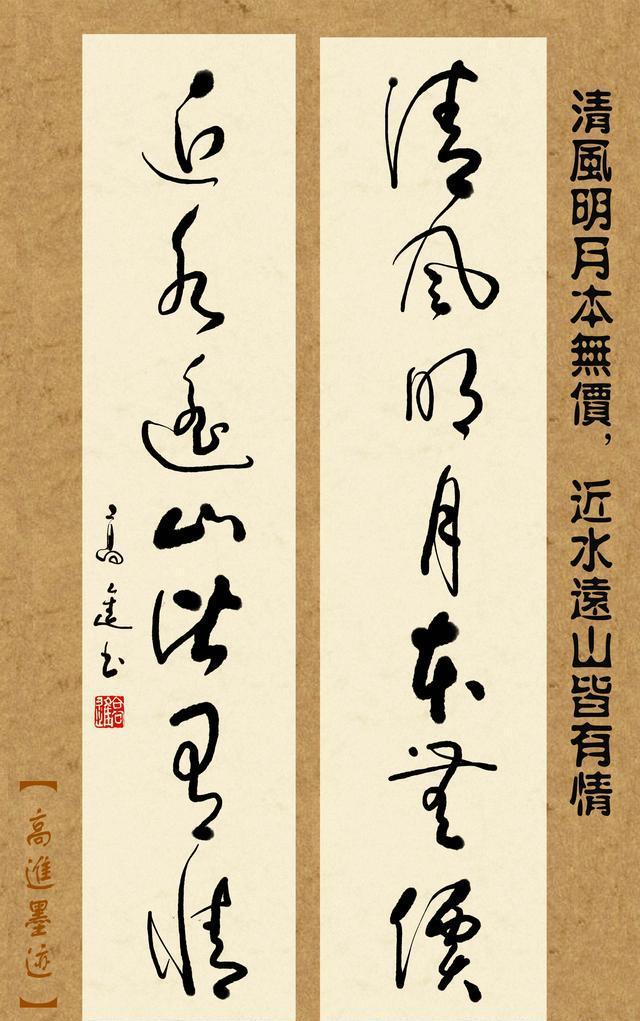 清風明月本無價，近水遠山皆有情
清風明月本無價
近水遠山皆有情
高進書
【高進墨迹】